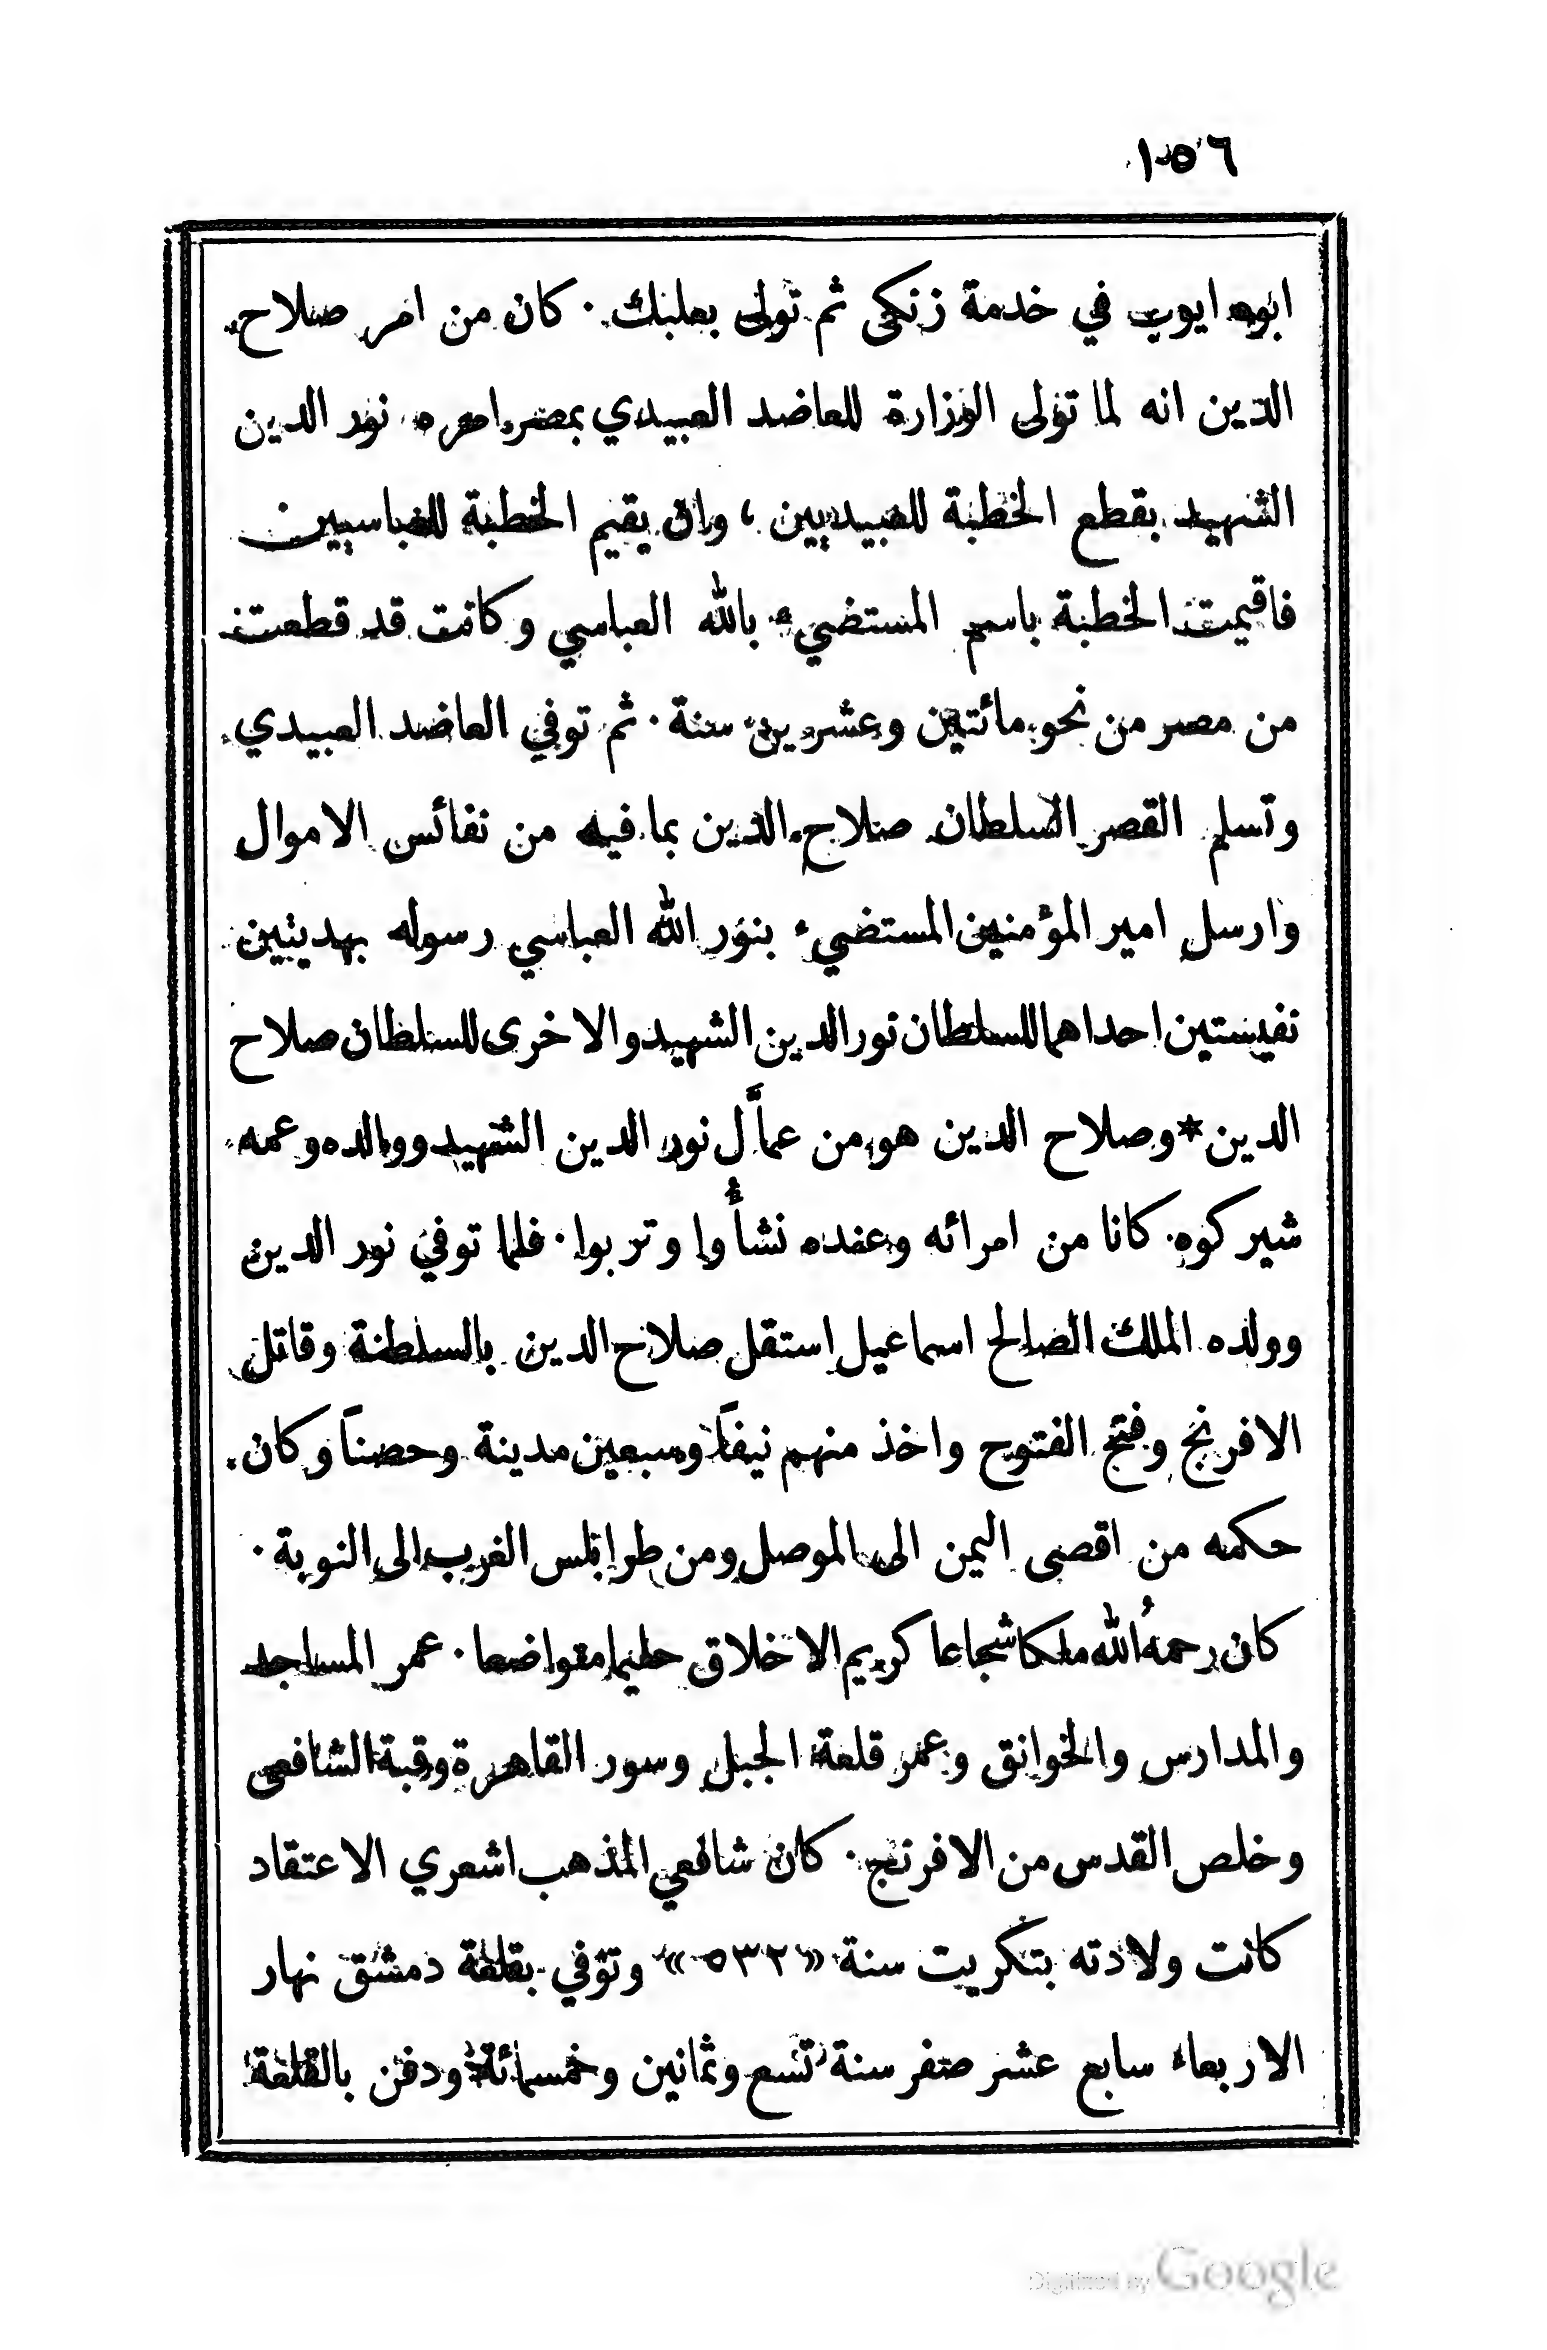 ١٥٦
ابوه ايوب في خدمة زنكى ثم تولى بعلبك ٠ كان من امر صلاح
الدين انه لما تولى الوزارة للعاضد العبيدي بمصر امره نور الدين
الشهيد بقطع الخطبة للعبيديين ، وان يقيم الخطبة للعباسيين
فاقيمت الخطبة باسم المستضيء بالله العباسي وكانت قد قطعت
من مصر من نحو مائتين وعشرين سنة ٠ ثم توفي العاضد العبيدي
وتسلم القصر السلطان صلاح الدين بما فيه من نفائس الاموال
وارسل امير المؤمنين المستضيء بنور الله العباسي رسوله بهديتين
نفيستين احداهما للسلطان نور الدين الشهيد والاخرى للسلطان صلاح
الدين * وصلاح الدين هو من عمَّال نور الدين الشهيد ووالده وعمه
شيركوه كانا من امرائه وعنده نشأوا وتربوا ٠ فلما توفي نور الدين
وولده الملك الصالح اسماعيل استقل صلاح الدين بالسلطنة وقاتل
الافرنج وفتح الفتوح واخذ منهم نيفاً وسبعين مدينة وحصناً وكان
حكمه من اقصى اليمن الى الموصل ومن طرابلس الغرب الى النوبة ٠
كان رحمهُ الله ملكا شجاعا كريم الاخلاق حليما متواضعا ٠ عمر المساجد
والمدارس والخوانق وعمر قلعة الجبل وسور القاهرة وقبة الشافعى
وخلص القدس من الافرنج ٠ كان شافعي المذهب اشعري الاعتقاد
كانت ولادته بتكريت سنة «٥٣٢» وتوفي بقلعة دمشق نهار
الاربعاء سابع عشر صفر سنة تسع وثمانين وخمسمائة ودفن بالقلعة
Digitized by Google